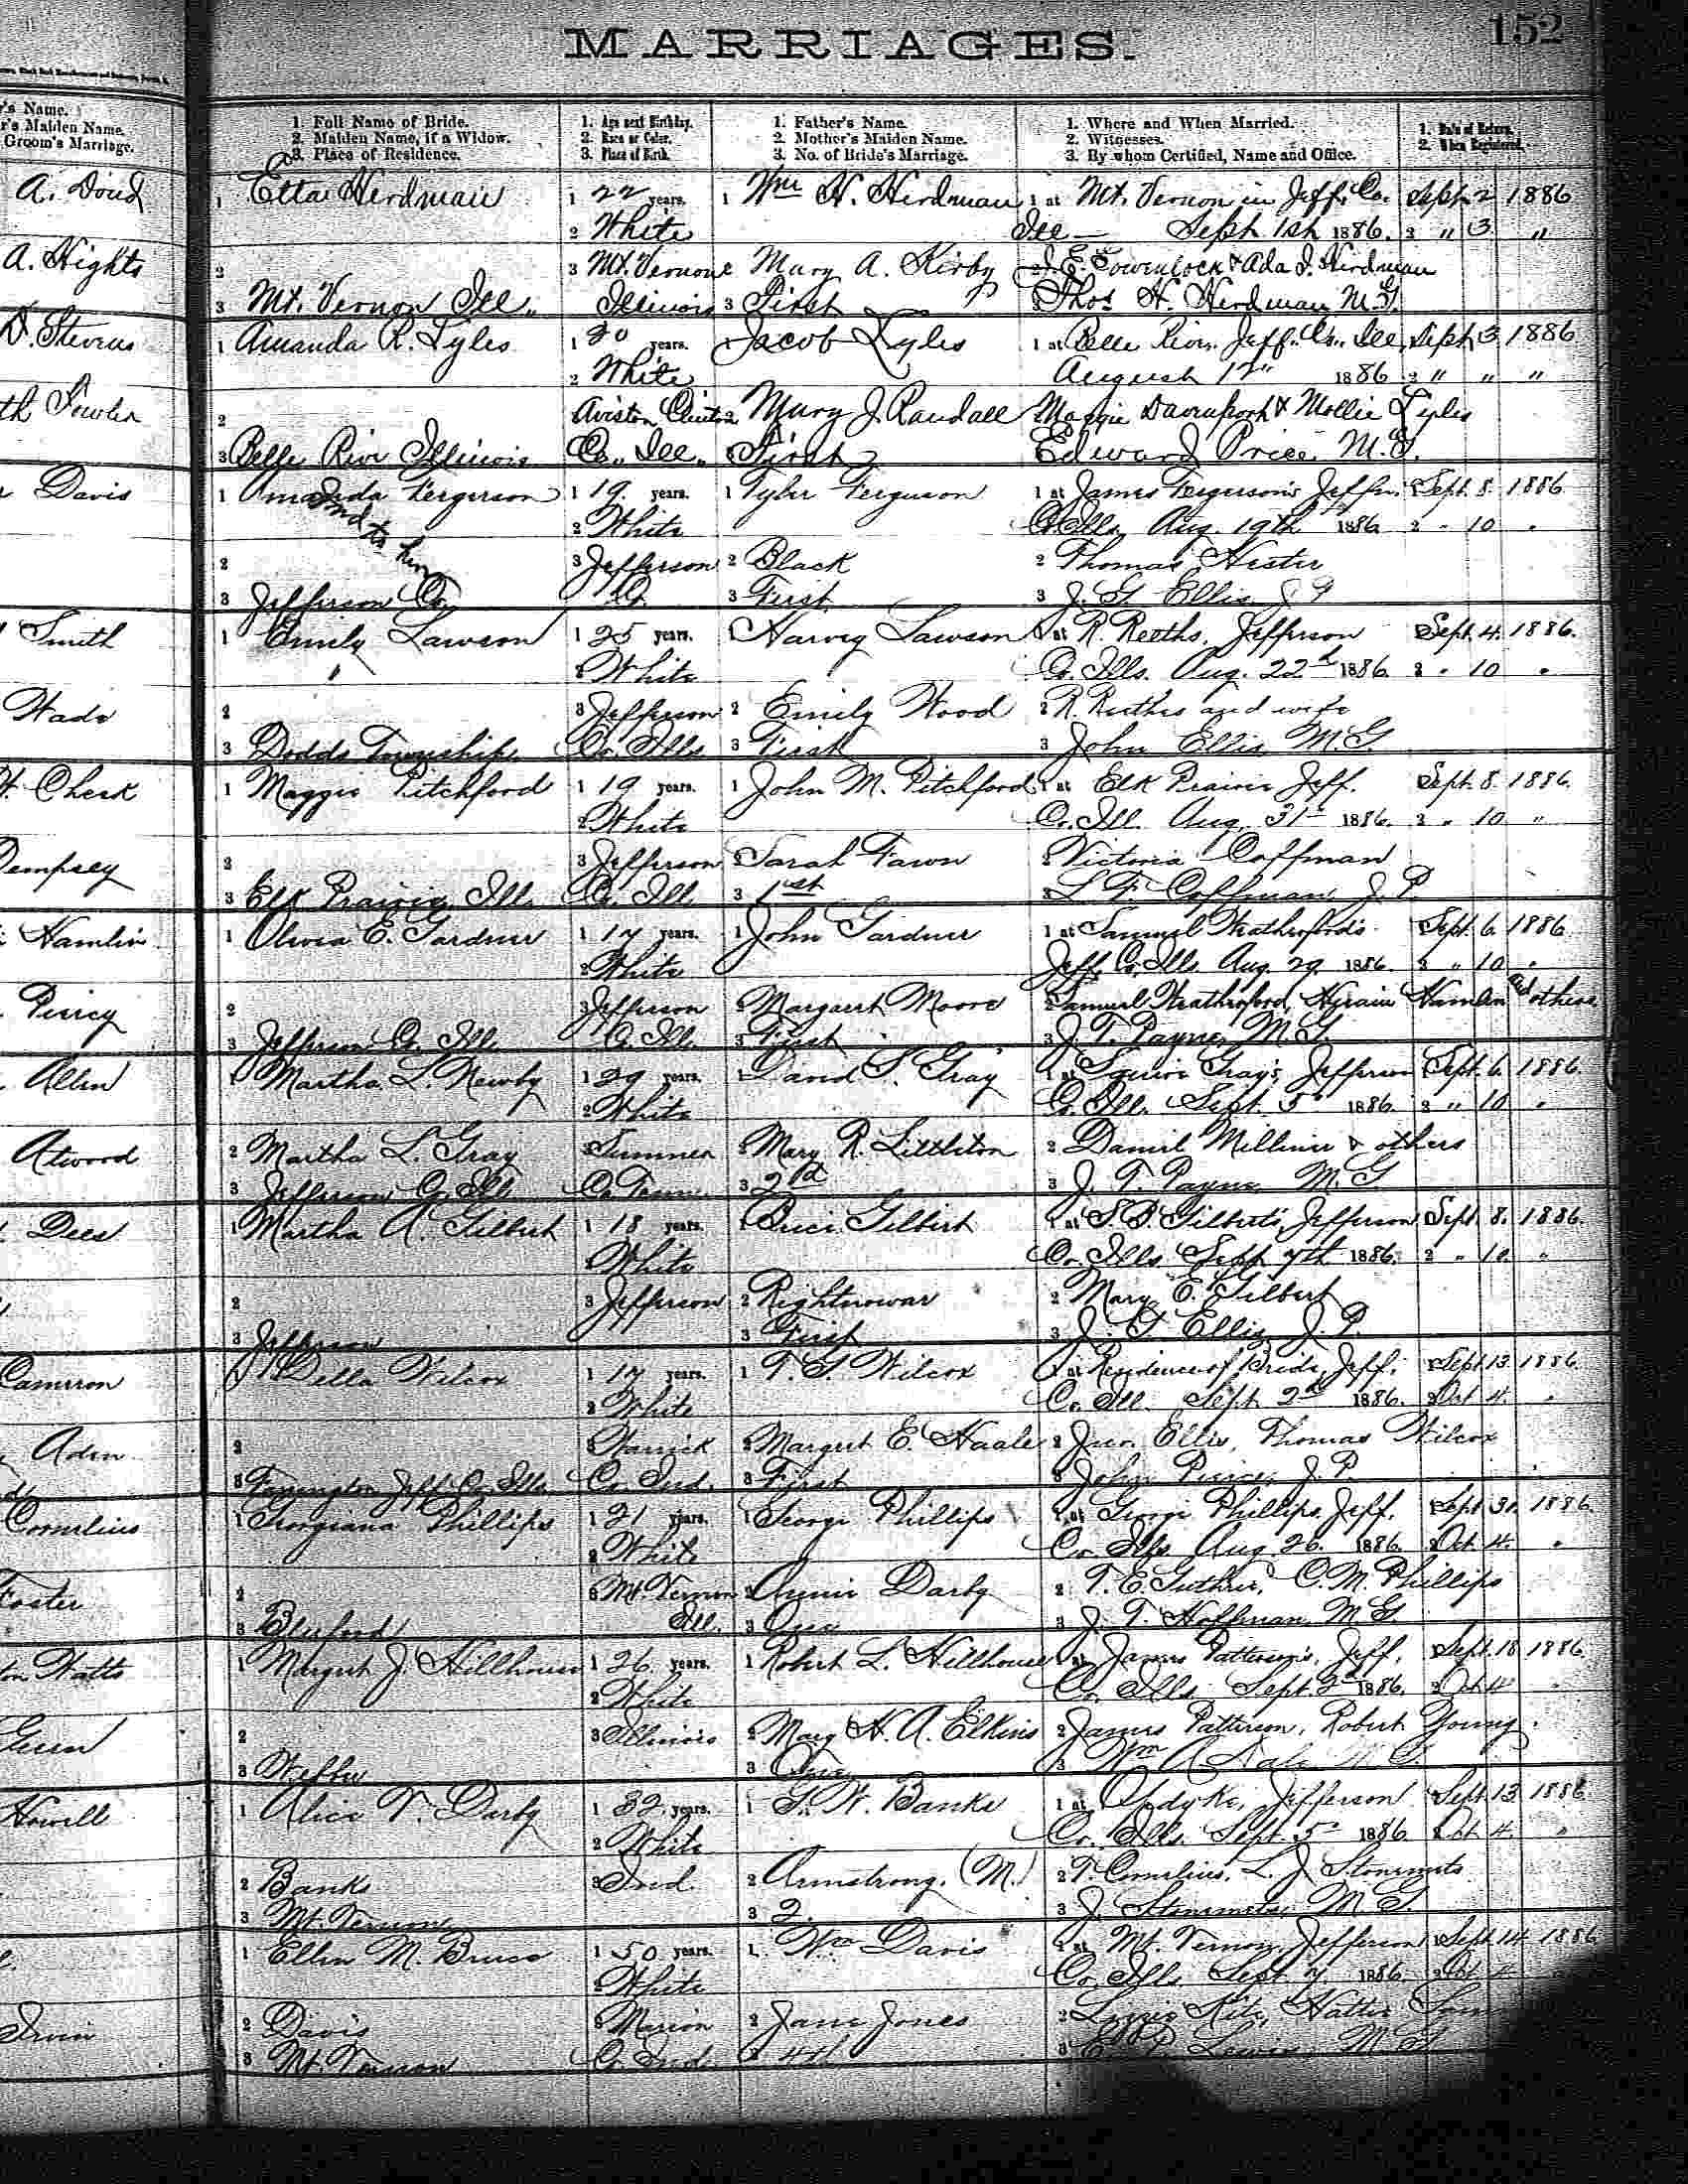 MARRIAGES.
152
r's Name.
r's Maiden Name.
Groom's Marriage.
1. Full Name of Bride.
2. Maiden Name, if a Widow.
3. Place of Residence.
1. Age next Birthday.
2. Race or Color.
3. Place of Birth.
1. Father's Name.
2. Mother's Maiden Name.
3. No. of Bride's Marriage.
1. Where and When Married.
2. Witnesses.
3. By whom Certified, Name and Office.
1. Date of Return.
2. When Registered.
A. Doud
1 Etta Herdman 1 22 years. 1 Wm H. Herdman 1 at Mt. Vernon in Jeff. Co. Sept. 2 1886
2 White Ill — Sept 1st 1886. 2 " 3 "
A. Hights
2 3 Mt. Vernon 2 Mary A. Kirby & Ada I. Herdman
3 Mt. Vernon Ill. Illinois 3 First Thos H. Herdman M.G.
D. Stevens
1 Amanda R. Lyles 1 20 years. Jacob Lyles 1 at Belle Rive Jeff. Co. Ill. Sept 3 1886
2 White August 12" 1886 2 " " "
th Fowler
2 Aviston Clinton 2 Mary J. Randall Maggie Davenport & Mollie Lyles
3 Belle Rive Illinois Co. Ill. First Edward Price M.G.
Davis
1 Amanda Fergerson 1 19 years. 1 Tyler Ferguson 1 at James Fergerson's Jeffn. Sept. 8. 1886
2 White Co. Ills. Aug. 19th 1886 2 " 10 "
2 3 Jefferson 2 Black 2 Thomas Hester
3 Jefferson Co. Co. 3 First 3 J. G. Ellis J P
Smith
1 Emily Lawson 1 25 years. Harvey Lawson 1 at R. Reeths, Jefferson Sept. 4. 1886.
2 White Co. Ills. Aug. 22d 1886. 2 " 10 "
Wade
2 3 Jefferson 2 Emily Wood 2 R. Reeths and wife
3 Dodds Township Co. Ills 3 First 3 John Ellis M.G.
Cheek
1 Maggie Pitchford 1 19 years. 1 John M. Pitchford 1 at Elk Prairie Jeff. Sept. 8. 1886.
2 White Co. Ill. Aug. 31st 1886. 2 " 10 "
Dempsey
2 3 Jefferson 2 Sarah Fawn 2 Victoria Coffman
3 Elk Prairie, Ill. Co. Ill. 3 1st 3 L. F. Coffman, J. P.
Hamlin
1 Olivia E. Gardner 1 17 years. 1 John Gardner 1 at Samuel Weatherford's Sept. 6. 1886
2 White Jeff. Co. Ills. Aug. 29 1886. 2 " 10 "
Piercy
2 3 Jefferson 2 Margaret Moore 2 Samuel Weatherford, Hiram Hamlin and others
3 Jefferson Co. Ill. Co. Ill. 3 First 3 J. T. Payne, M.G.
Allen
1 Martha L. Newby 1 29 years. 1 David S. Gray 1 at Squire Gray's, Jefferson Sept. 6. 1886.
2 White Co. Ill. Sept. 5 1886. 2 " 10 "
Atwood
2 Martha L. Gray 3 Sumner 2 Mary R. Littleton 2 Daniel Milliner & others
3 Jefferson Co. Ill Co Tenn 3 2d 3 J. T. Payne, M. G
Dees
1 Martha A. Gilbert 1 18 years. 1 Brice Gilbert 1 at S. B. Gilbert's, Jefferson Sept. 8. 1886.
2 White Co. Ills Sept 7th 1886. 2 " 10. "
2 3 Jefferson 2 Rightnowar 2 Mary E. Gilbert
3 Jefferson 3 First 3 J. G. Ellis, J. P.
Cameron
1 Della Wilcox 1 17 years. 1 T. G. Wilcox 1 at Residence of Bride, Jeff. Sept. 13. 1886.
2 White Co. Ill. Sept. 2nd 1886. 2 Oct 4. "
Aden
2 3 Warrick 2 Margert E. Haale 2 Jno. Ellis, Thomas Wilcox
3 Farrington Jeff Co. Ills. Co. Ind. 3 First 3 John Pierce, J. P.
Cornelius
1 Georgeana Phillips 1 21 years. 1 George Phillips 1 at George Phillips, Jeff. Sept 30. 1886.
2 White Co. Ills. Aug. 26. 1886. 2 Oct. 4. "
Foster
2 3 Mt. Vernon 2 Annie Darby 2 T. E. Guthrie, C. M. Phillips
3 Bluford Ill. 3 One 3 J. T. Hoffman, M G
Watts
1 Margert J. Hillhouse 1 26 years. 1 Robert L. Hillhouse 1 at James Patterson's, Jeff. Sept. 18 1886.
2 White Co. Ills. Sept. 2d 1886. 2 Oct 4 "
Green
2 3 Illinois 2 Mary H. A. Elkins 2 James Patterson, Robert Young.
3 3 One 3 Wm A Dale M. G.
Howell
1 Alice V. Darby 1 32 years. 1 G. W. Banks 1 at Opdyke, Jefferson Sept. 13 1886
2 White Co. Ills. Sept. 5 1886 2 Oct. 4. "
2 Banks 3 Ind. 2 Armstrong. (M.) 2 T. Cornelius, L. J. Stonemets
3 Mt. Vernon 3 2. 3 J. Stonemets, M. G.
1 Ellen M. Bruce 1 50 years. 1 Wm Davis 1 at Mt. Vernon, Jefferson Sept. 14. 1886
2 White Co. Ills. Sept. 7 1886. 2 Oct 4
Irvin
2 Davis 3 Marion 2 Jane Jones 2 Kite, Hattie
3 Mt. Vernon Co. Ind. 3 4th 3 Lewis, M G